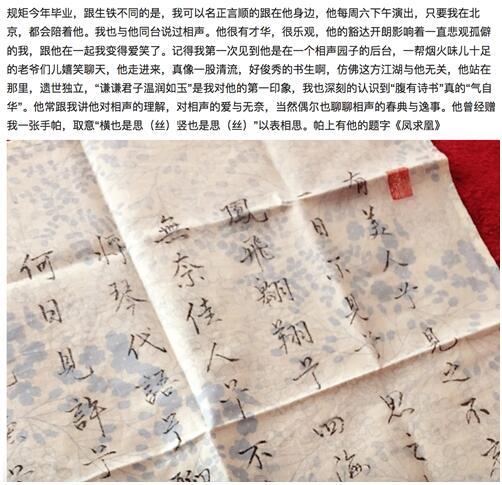 规矩今年毕业，跟生铁不同的是，我可以名正言顺的跟在他身边，他每周六下午演出，只要我在北
京，都会陪着他。我也与他同台说过相声。他很有才华，很乐观，他的豁达开朗影响着一直悲观孤僻
的我，跟他在一起我变得爱笑了。记得我第一次见到他是在一个相声园子的后台，一帮烟火味儿十足
的老爷们儿嬉笑聊天，他走进来，真像一股清流，好俊秀的书生啊，仿佛这方江湖与他无关，他站在
那里，遗世独立，“谦谦君子温润如玉”是我对他的第一印象，我也深刻的认识到“腹有诗书”真的“气自
华”。他常跟我讲他对相声的理解，对相声的爱与无奈，当然偶尔也聊聊相声的春典与逸事。他曾经赠
我一张手帕，取意“横也是思（丝）竖也是思（丝）”以表相思。帕上有他的题字《凤求凰》
有美人兮見之不
一日不見兮思之
鳳飛翱翔兮四海
無奈佳人兮不
將琴代語兮聊
何日見許兮